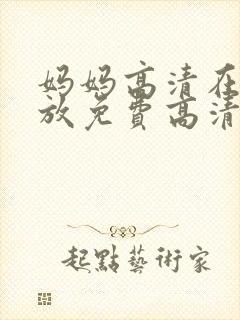 妈妈高清在
放免费高清
起點藝術家